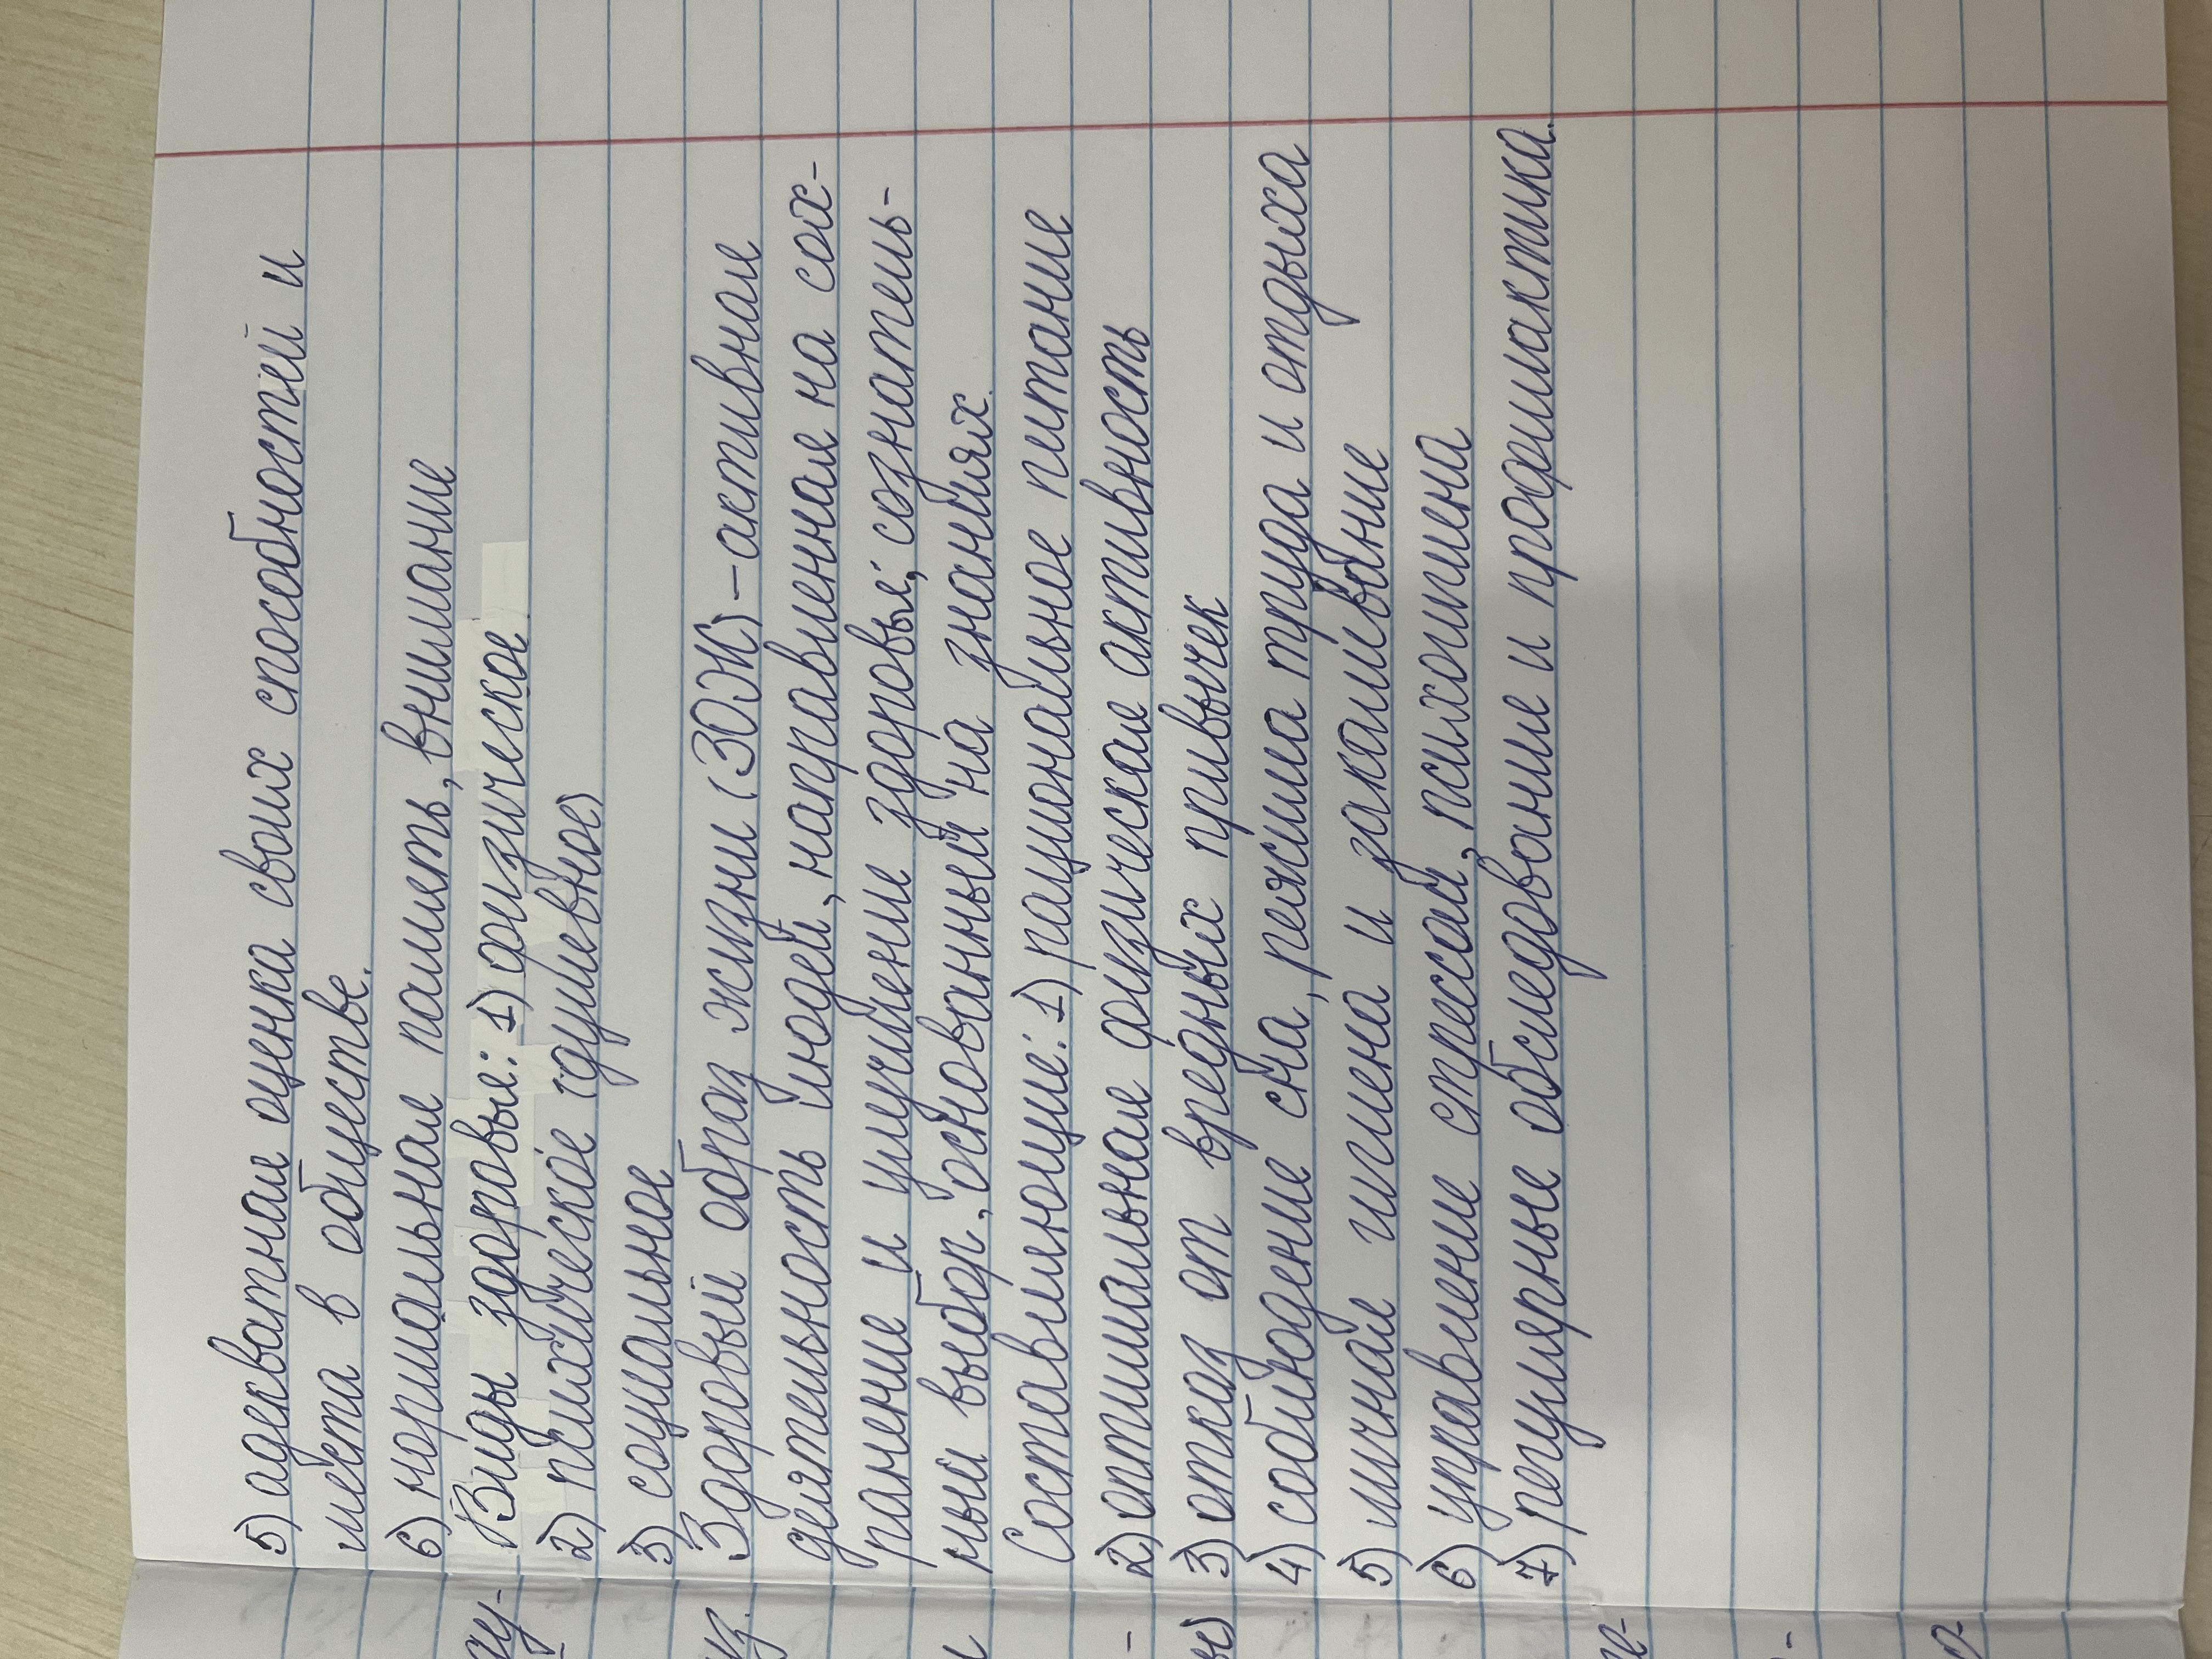 5) адекватная оценка своих способностей и
места в обществе.
6) нормальная память, внимание
Виды здоровья: 1) физическое
2) психическое (душевное)
3) социальное
Здоровый образ жизни (ЗОЖ) – активная
деятельность людей, направленная на сох-
ранение и улучшение здоровья; сознатель-
ный выбор, основанный на знаниях.
Составляющие: 1) рациональное питание
2) оптимальная физическая активность
3) отказ от вредных привычек
4) соблюдение сна, режима труда и отдыха
5) личная гигиена и закаливание
6) управление стрессом, психогигиена
7) регулярные обследования и профилактика.